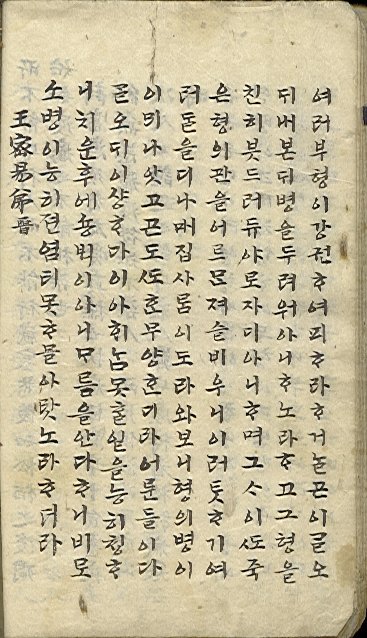 여러부형이강젼ᄒᆞ여피ᄒᆞ라ᄒᆞ거ᄂᆞᆯ곤이ᄀᆞᆯ오
ᄃᆡ내본ᄃᆡ병을두려워아니ᄒᆞ노라ᄒᆞ고그형을
친히븟드러듀야로자디아니ᄒᆞ며그ᄉᆞ이ᄯᅩ죽
은형의관을어르ᄆᆞᆫ져슬비우니이러ᄐᆞᆺᄒᆞ기여
러ᄃᆞᆯ을디나매집사ᄅᆞᆷ이도라와보니형의병이
이믜나앗고곤도ᄯᅩᄒᆞᆫ무양ᄒᆞᆫ디라어룬들이다
ᄀᆞᆯ오ᄃᆡ이샹ᄒᆞ다이아ᄒᆡᄂᆞᆷ못ᄒᆞᆯ일을능히ᄒᆡᆼᄒᆞ
니치운후에숑ᄇᆡᆨ이아니ᄆᆞᄅᆞᆷ을안다ᄒᆞ니비로
소병이능히뎐염티못ᄒᆞᄆᆞᆯ아랏노라ᄒᆞ더라
王密易弟晉